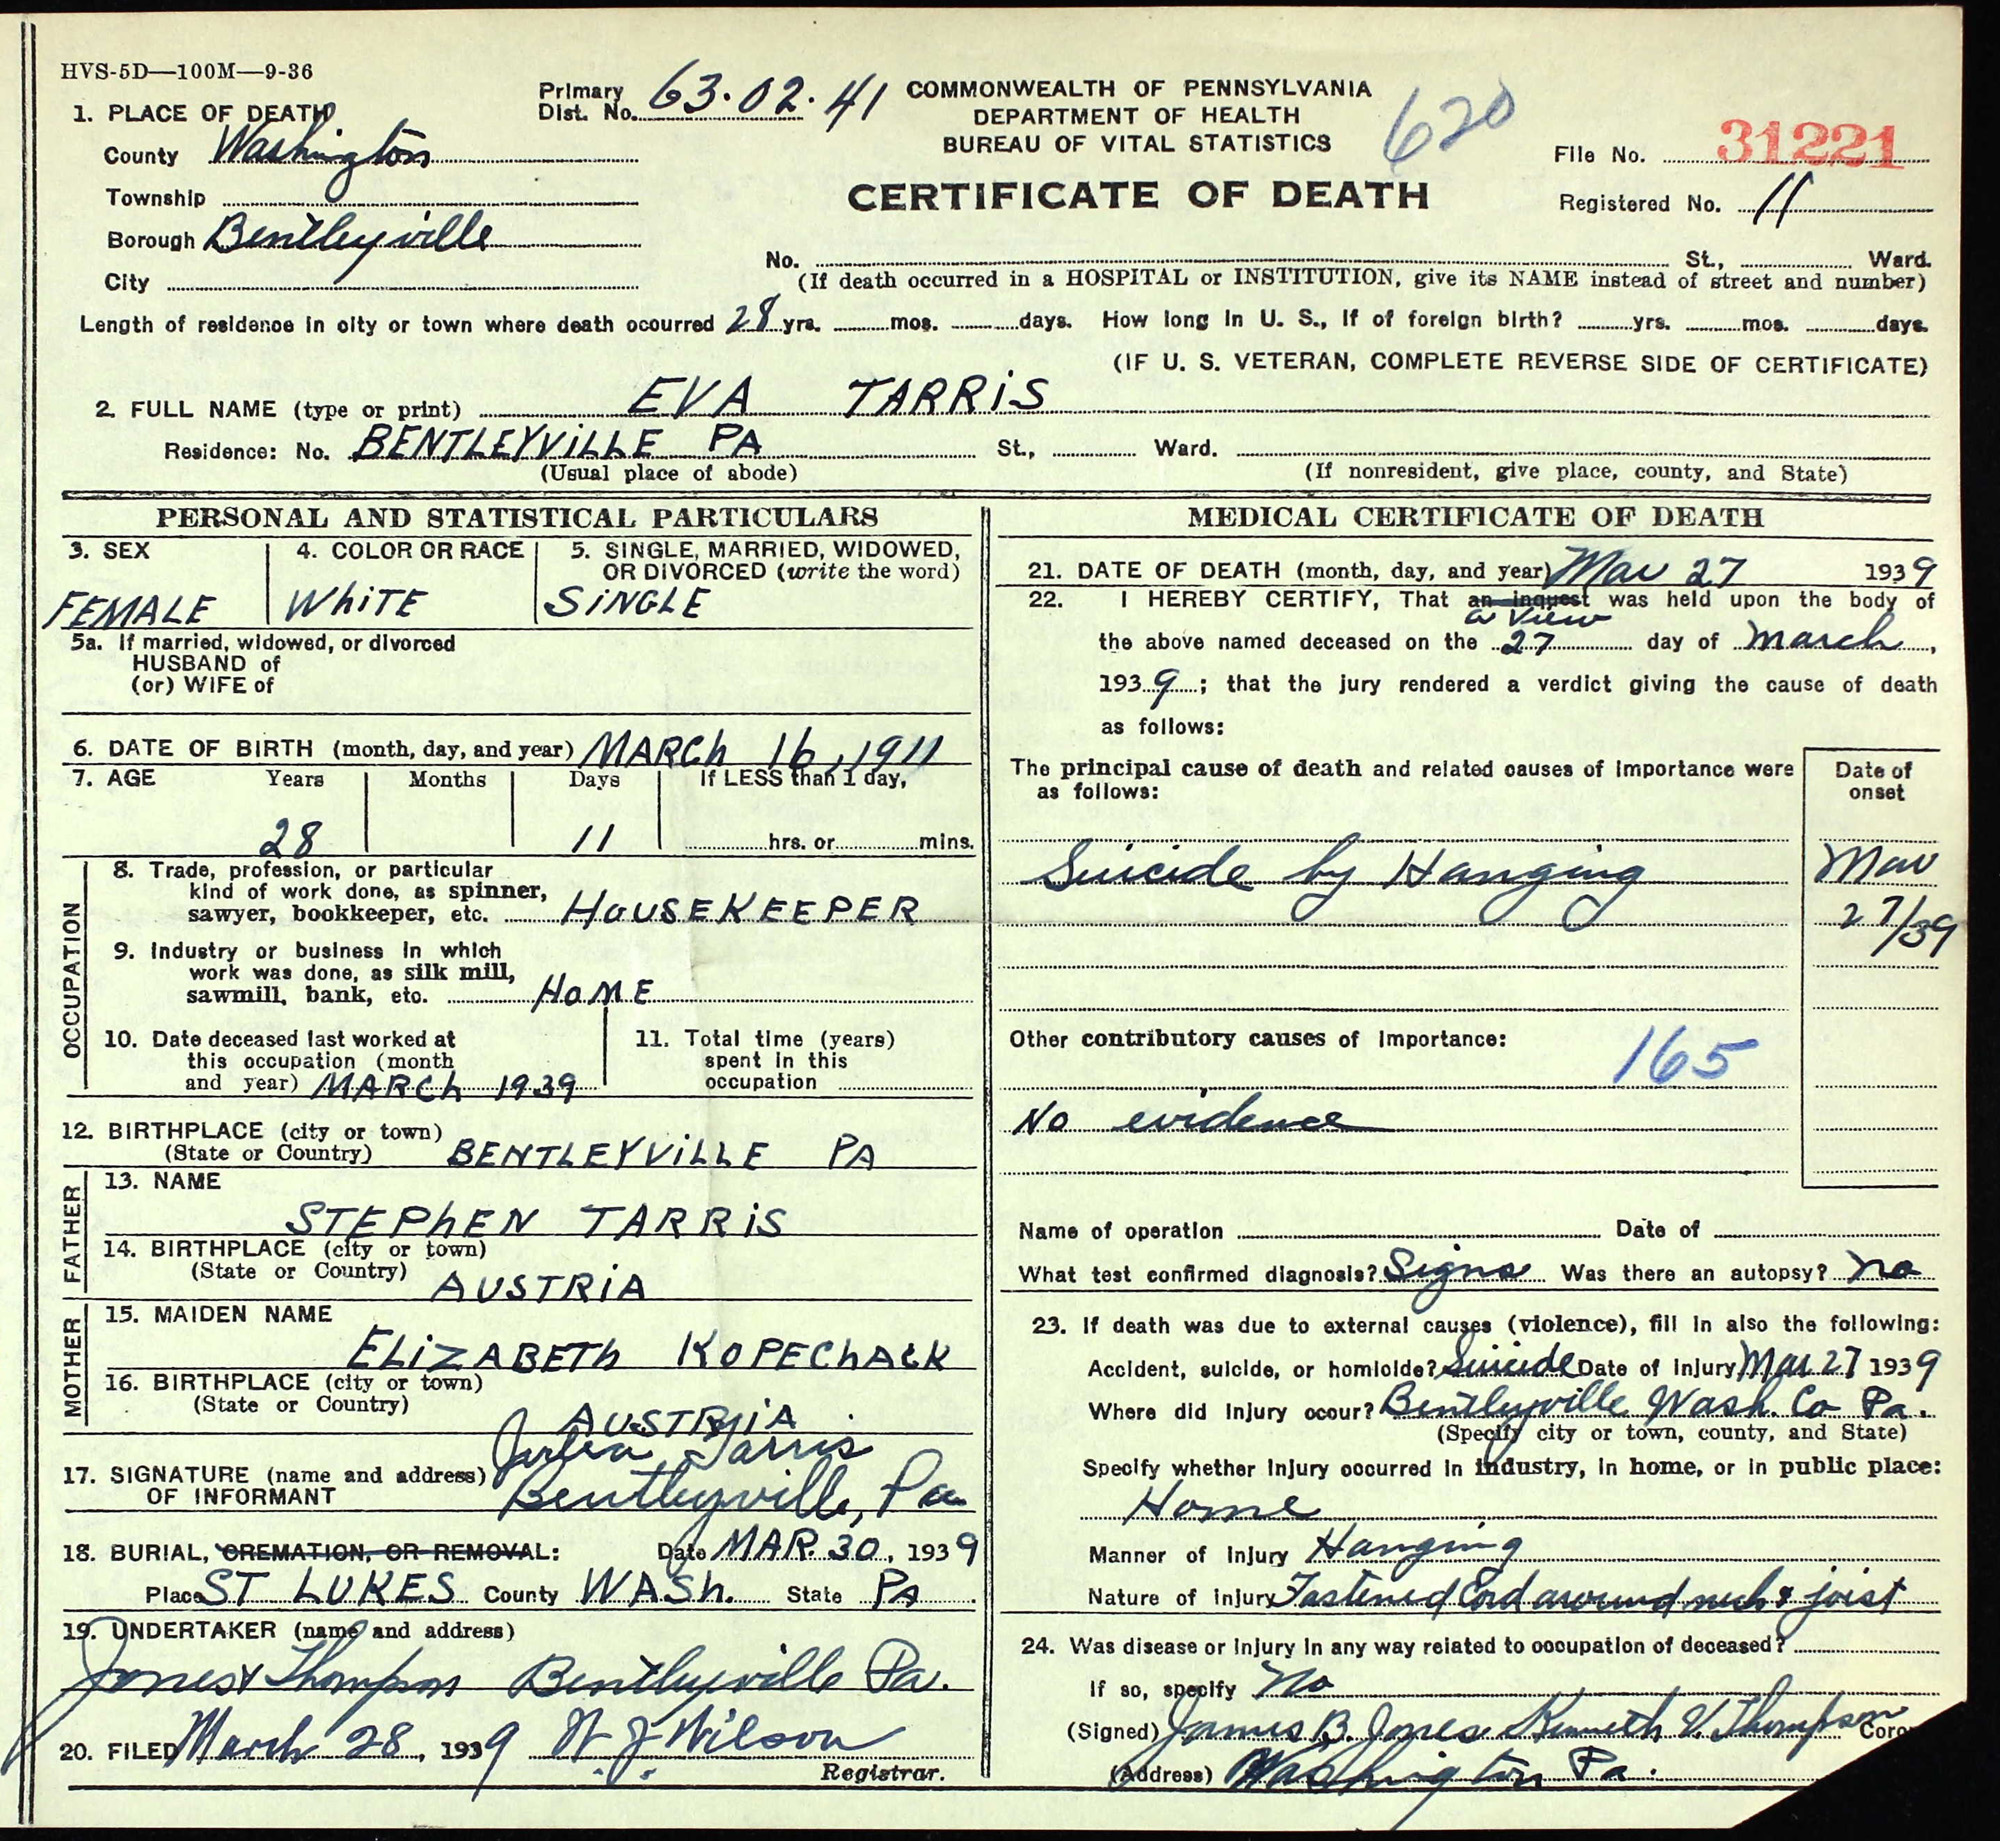 HVS-5D—100M—9-36
Primary Dist. No. 63.02.41
COMMONWEALTH OF PENNSYLVANIA
DEPARTMENT OF HEALTH
BUREAU OF VITAL STATISTICS
620
File No. 31221
CERTIFICATE OF DEATH
Registered No. 11
1. PLACE OF DEATH
County Washington
Township
Borough Bentleyville
City
No. St., Ward.
(If death occurred in a HOSPITAL or INSTITUTION, give its NAME instead of street and number)
Length of residence in city or town where death occurred 28 yrs. mos. days. How long in U. S., if of foreign birth? yrs. mos. days.
(IF U. S. VETERAN, COMPLETE REVERSE SIDE OF CERTIFICATE)
2. FULL NAME (type or print) EVA TARRIS
Residence: No. BENTLEYVILLE PA St., Ward.
(Usual place of abode) (If nonresident, give place, county, and State)
PERSONAL AND STATISTICAL PARTICULARS
3. SEX 4. COLOR OR RACE 5. SINGLE, MARRIED, WIDOWED,
OR DIVORCED (write the word)
FEMALE WHITE SINGLE
5a. If married, widowed, or divorced
HUSBAND of
(or) WIFE of
6. DATE OF BIRTH (month, day, and year) MARCH 16, 1911
7. AGE Years Months Days If LESS than 1 day,
28 11 hrs. or mins.
OCCUPATION
8. Trade, profession, or particular
kind of work done, as spinner,
sawyer, bookkeeper, etc. HOUSEKEEPER
9. Industry or business in which
work was done, as silk mill,
sawmill, bank, etc. HOME
10. Date deceased last worked at
this occupation (month
and year) MARCH 1939
11. Total time (years)
spent in this
occupation
12. BIRTHPLACE (city or town)
(State or Country) BENTLEYVILLE PA
FATHER
13. NAME
STEPHEN TARRIS
14. BIRTHPLACE (city or town)
(State or Country) AUSTRIA
MOTHER
15. MAIDEN NAME
ELIZABETH KOPECHACK
16. BIRTHPLACE (city or town)
(State or Country)
AUSTRIA
Julia Tarris
17. SIGNATURE (name and address)
OF INFORMANT Bentleyville, Pa
18. BURIAL, CREMATION, OR REMOVAL: Date MAR. 30, 1939
Place ST LUKES County WASH. State PA
19. UNDERTAKER (name and address)
Jones & Thompson Bentleyville Pa.
20. FILED March 28, 1939 W. J. Wilson
Registrar.
MEDICAL CERTIFICATE OF DEATH
21. DATE OF DEATH (month, day, and year) Mar 27 1939
22. I HEREBY CERTIFY, That an inquest was held upon the body of
a View
the above named deceased on the 27 day of March,
1939; that the jury rendered a verdict giving the cause of death
as follows:
The principal cause of death and related causes of importance were
as follows:
Date of
onset
Suicide by Hanging Mar
27/39
Other contributory causes of importance:
165
No evidence
Name of operation Date of
What test confirmed diagnosis? Signs Was there an autopsy? no
23. If death was due to external causes (violence), fill in also the following:
Accident, suicide, or homicide? Suicide Date of injury Mar 27 1939
Where did injury occur? Bentleyville Wash. Co Pa.
(Specify city or town, county, and State)
Specify whether injury occurred in industry, in home, or in public place:
Home
Manner of injury Hanging
Nature of injury Fastened Cord around neck & joist
24. Was disease or injury in any way related to occupation of deceased?
If so, specify No
(Signed) James B. Jones Kenneth V. Thompson Coro
(Address) Washington Pa.